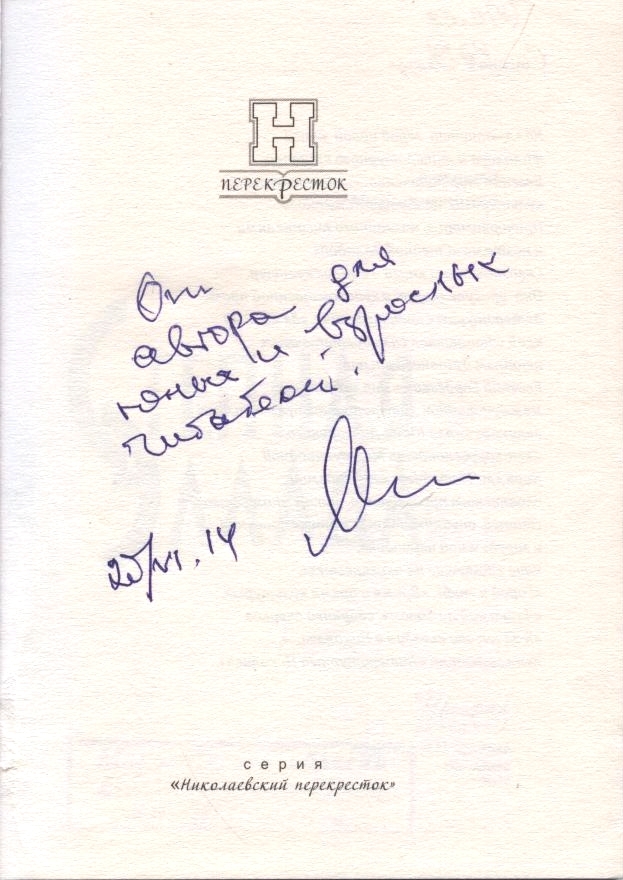 Н
ПЕРЕКРЕСТОК
От для
автора
юных и взрослых
читателей!
25/VI.14
серия
«Николаевский перекресток»